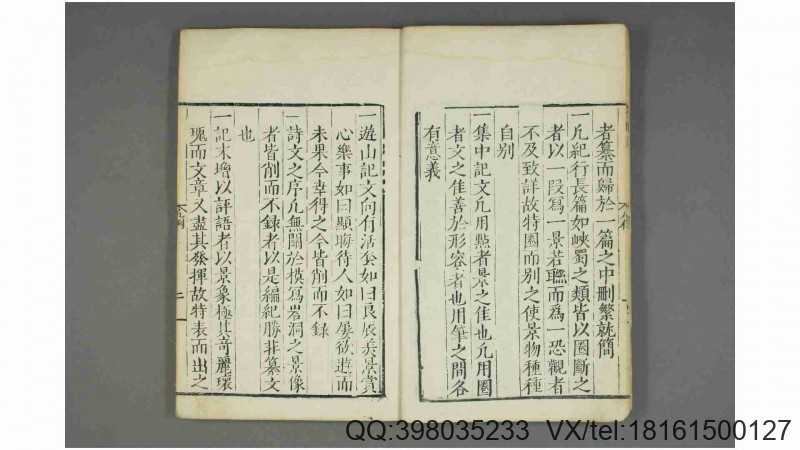 者纂而歸於一篇之中刪繁就簡
一凡紀行長篇如峽蜀之類皆以圈斷之
者以一段爲一景若聮而爲一恐觀者
不及致詳故特圈而别之使景物種種
自别
一集中記文凡用點者景之佳也凡用圈
者文之佳善於形容者也用筆之間各
有意義
一遊山記文向有活套如曰良辰美景賞
心樂事如曰顯晦待人如曰屢欲遊而
未果今幸得之今皆削而不録
一詩文之序凡無關於模寫岩洞之景像
者皆削而不録者以是編紀勝非纂文
也
一記末增以評語者以景象極其奇麗環
瑰而文章又盡其發揮故特表而出之
二
QQ:398035233 VX/tel:18161500127